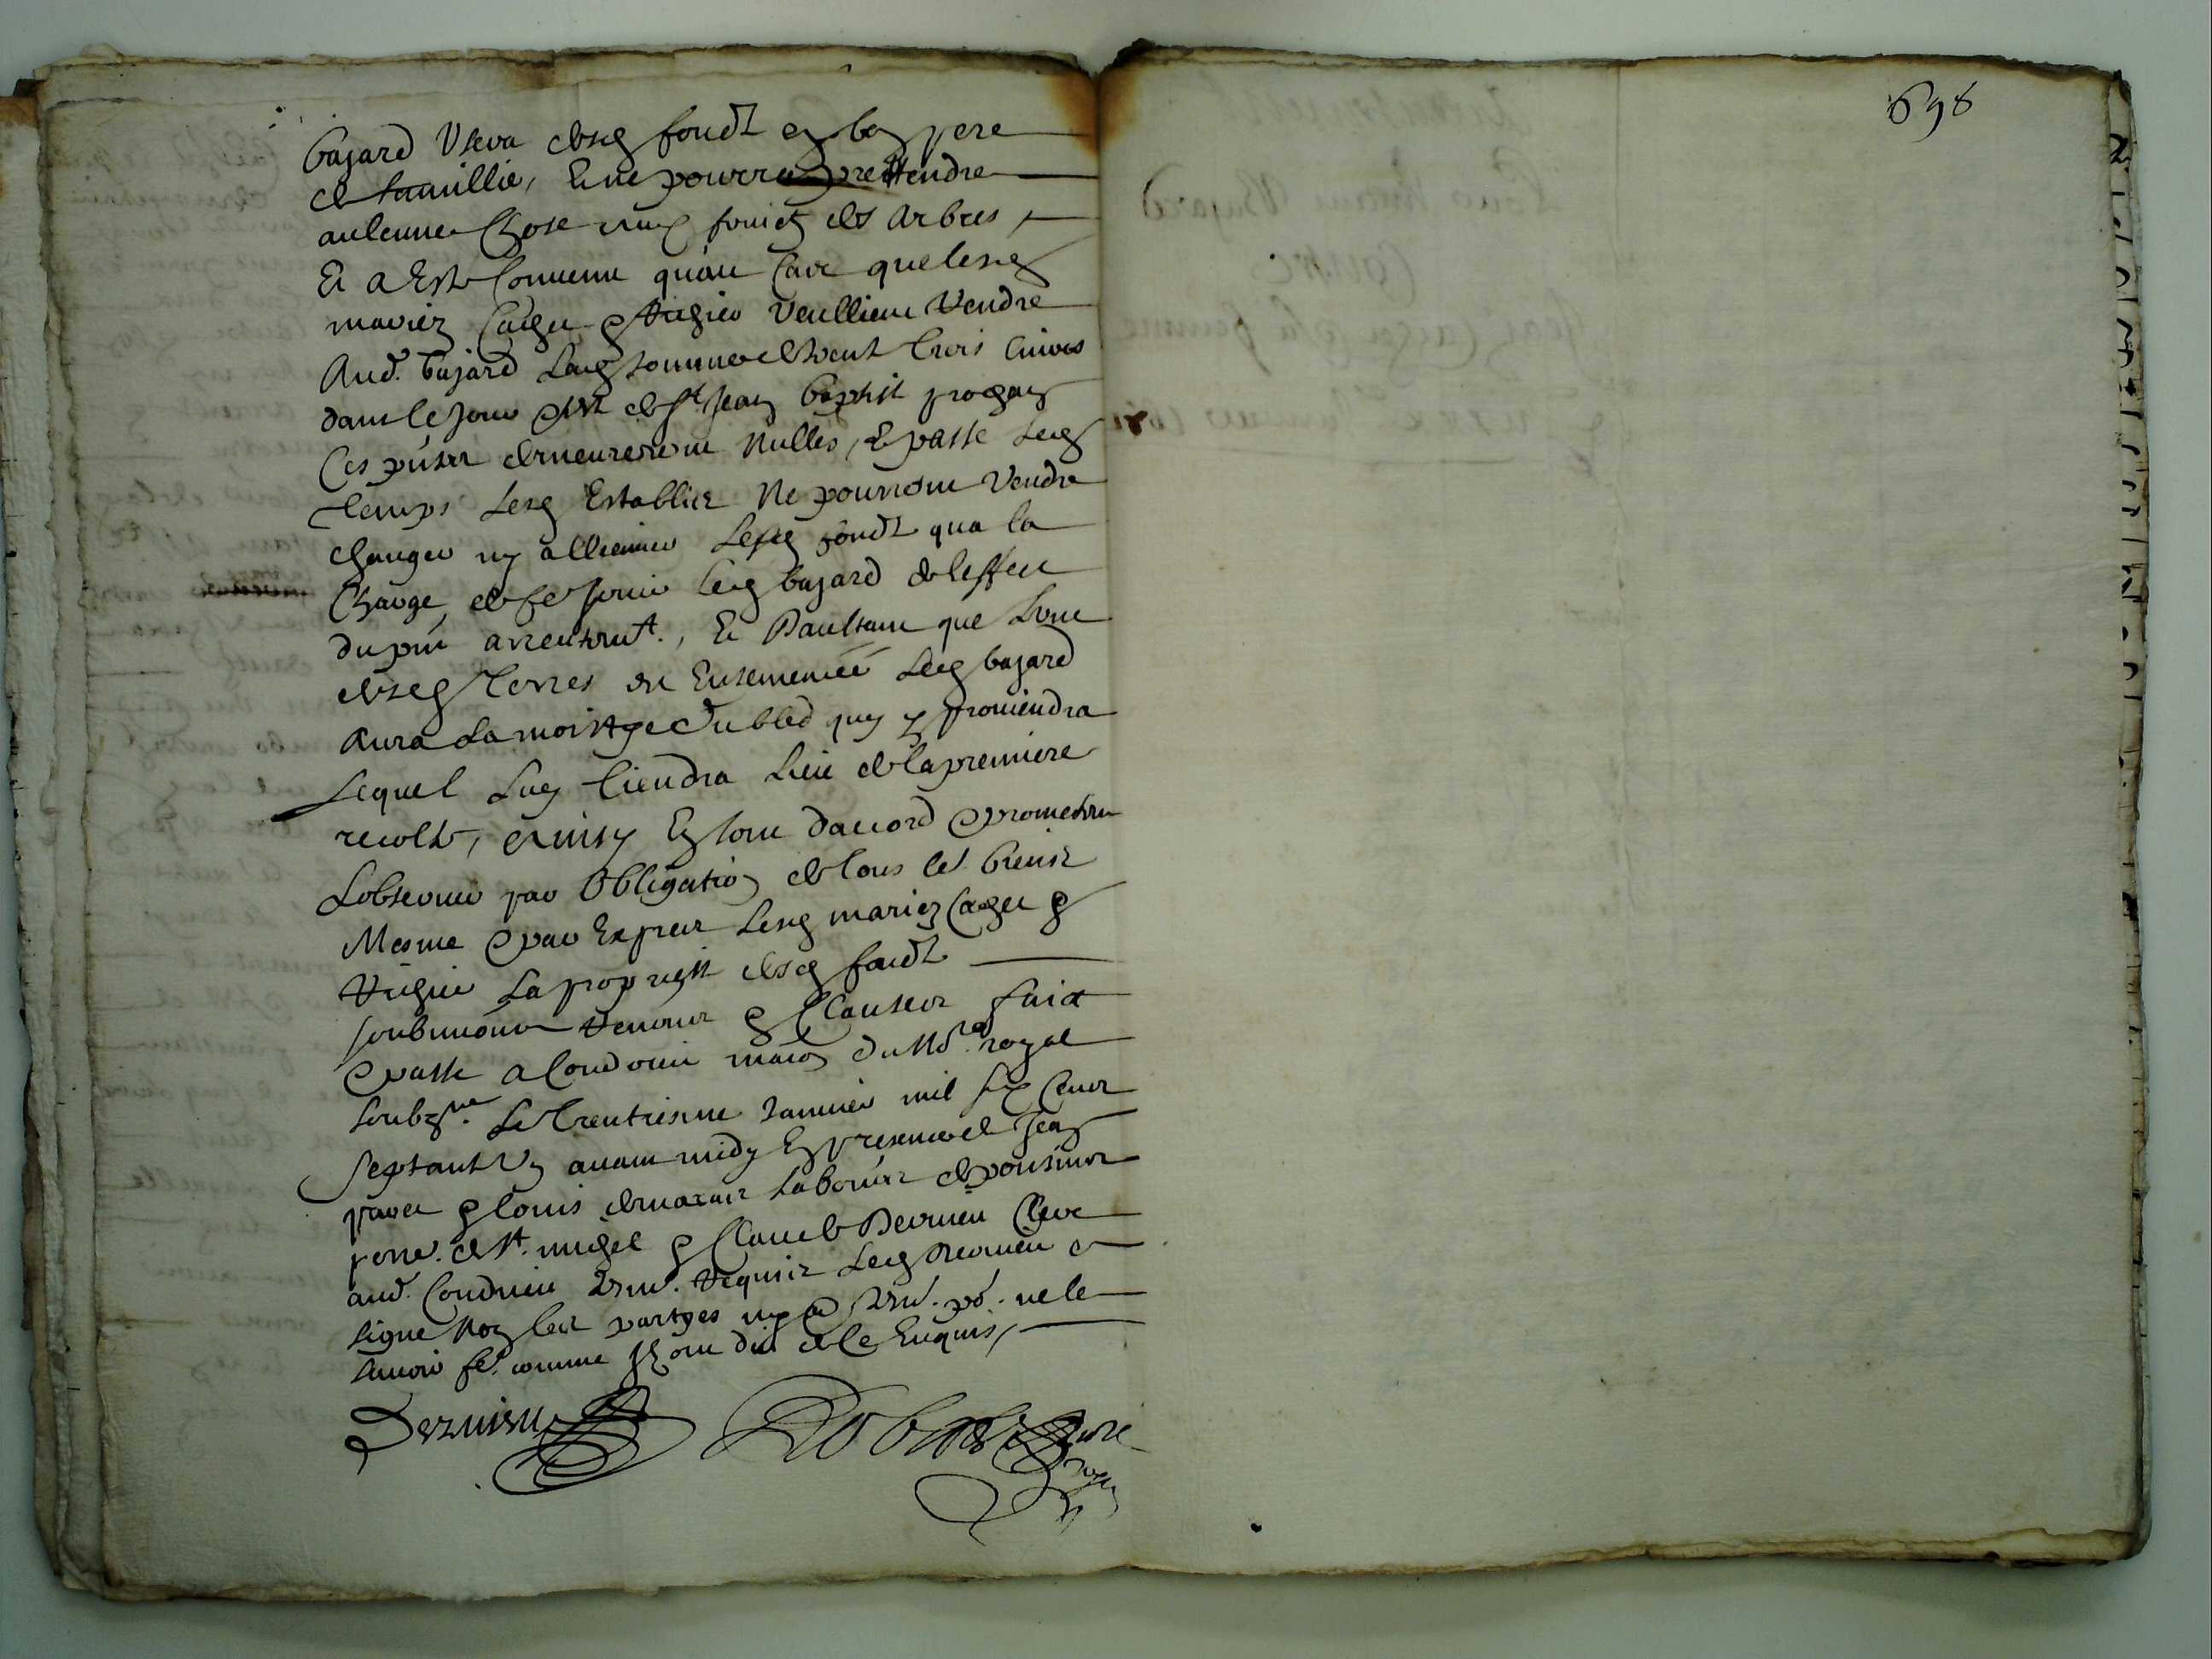 698
bajard Usera desd fondz en bon pere
de famillie, Et ne pourra prettendre
aulcune Chose aux fruictz des Arbres,
Et a Esté Conuenu quau Cas que lesd
mariez Caiget & veullient Rendre
Aud. bajard lad somme de Trois liures
dans le Jour & feste de St Jean baptist prochain
Ces pntes demeureront Nulles, Et passé led
temps lesd Establiz Ne pourront Vendre
changer ny allienner lesd fondz qua la
Charge de fe Jouir led bajard de leffect
du pnt arrentemt., Et Daultant que lune
desd Terres est Ensemencée led bajard
Aura la moistye du bled quy y prouiendra
Lequel luy tiendra lieu de la premiere
recolte, Ainsy En sont daccord & promettent
Lobseruer par Obligation de tous les biens
Mesme & par Exprez lesd mariez Caget &
la proprieté desd fondz
soubmons renonons & Clauses faict
& passé a Condrieu maison du No.re royal
soubzne. le Trentiesme Januier mil six Cens
septante Un auant midy En presence de Jean
& Louis laboureur de
perr. de St. migel & Claude Deruieu Clerc
aud. Condrieu tesm. requis led Deruieu a
signé Non les partyes ny led tesm. po. ne le
sauoir fe. comme Ilz ont dit de ce Enquis,
Deruieu Robert No.re
royal